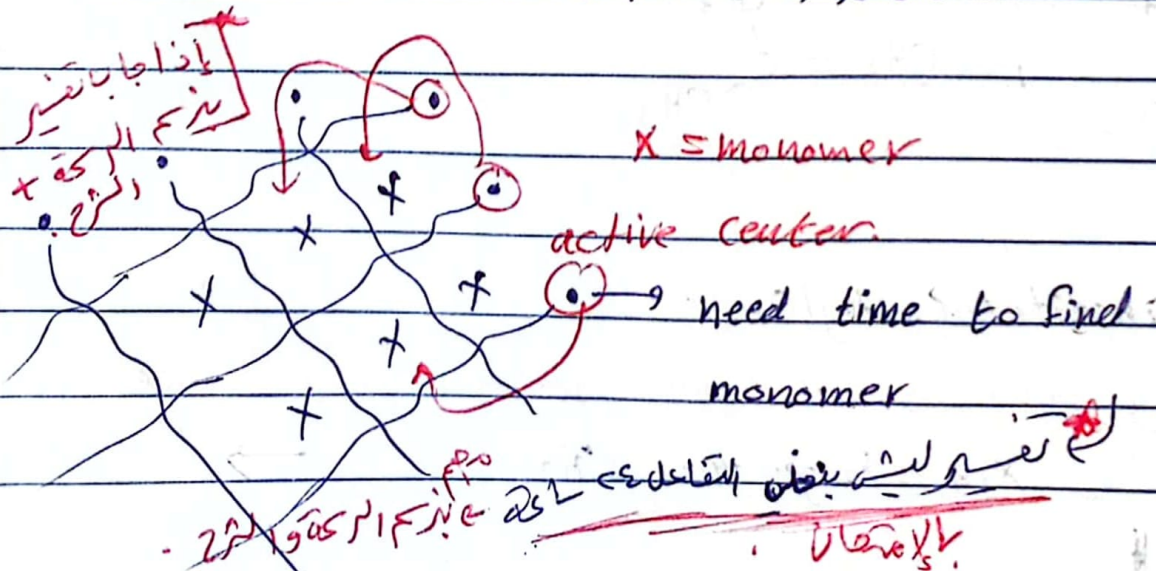 إذا جا بتفسير
بلزم الرسمة +
الشرح
X = monomer
active center.
need time to find
monomer
تفسير ليش بنعطي التفاعل
مهم
بلزم الرسمة والشرح.
بالامتحان.